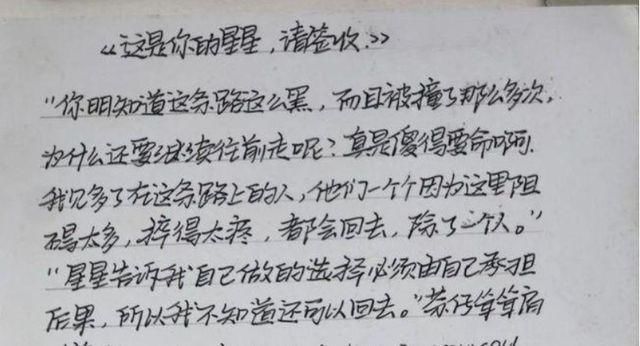 《这是你的星星，请签收.》
"你明知道这条路这么黑，而且被撞了那么多次，
为什么还要继续往前走呢？真是傻得要命啊.
我见多了在这条路上的人，他们一个个因为这里阻
碍太多，摔得太疼，都会回去，除了一个人。"
"星星告诉我自己做的选择必须由自己承担
后果，所以我不知道还可以回去。"苏仔耸耸肩